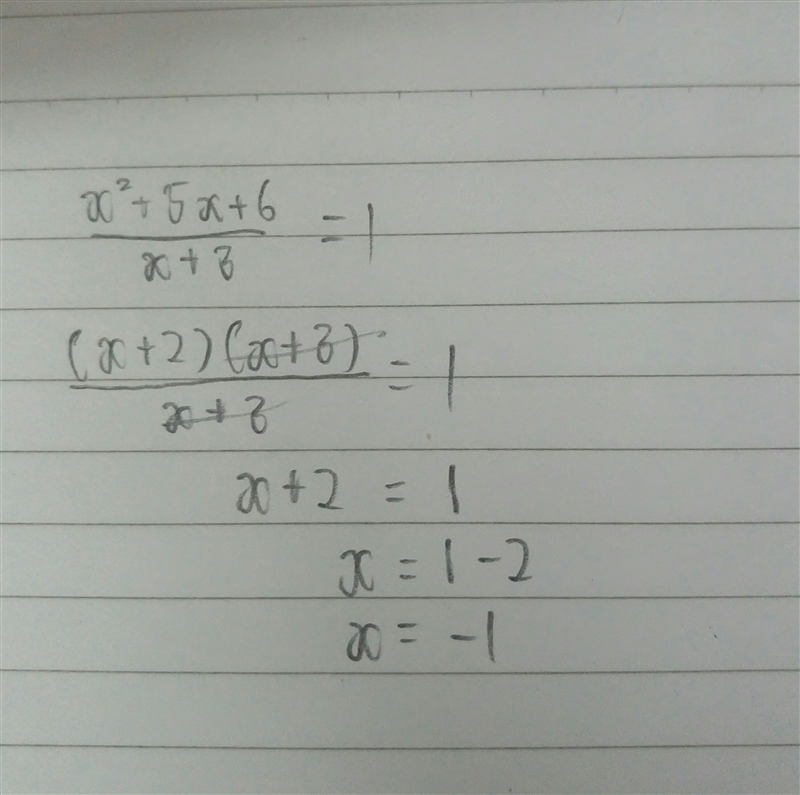 x²+5x+6
x+3
=1
(x+2)(x+3)
x+3
=1
x+2 = 1
x = 1-2
x = -1